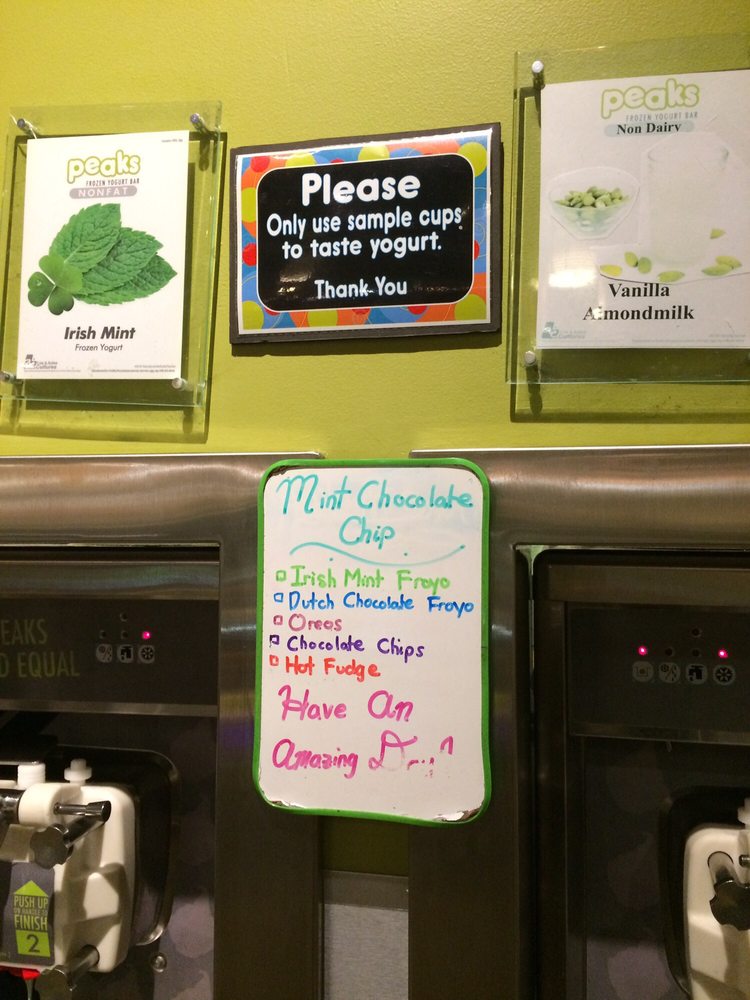 peaks
FROZEN YOGURT BAR
NONFAT
Irish Mint
Frozen Yogurt
Please
Only use sample cups
to taste yogurt.
Thank You
peaks
FROZEN YOGURT BAR
Non Dairy
Vanilla
Almondmilk
Mint Chocolate
Chip
Irish Mint Froyo
Dutch Chocolate Froyo
Oreos
Chocolate Chips
Hot Fudge
Have An
Amazing
EAKS
D EQUAL
PUSH UP
ON HANDLE TO
FINISH
2